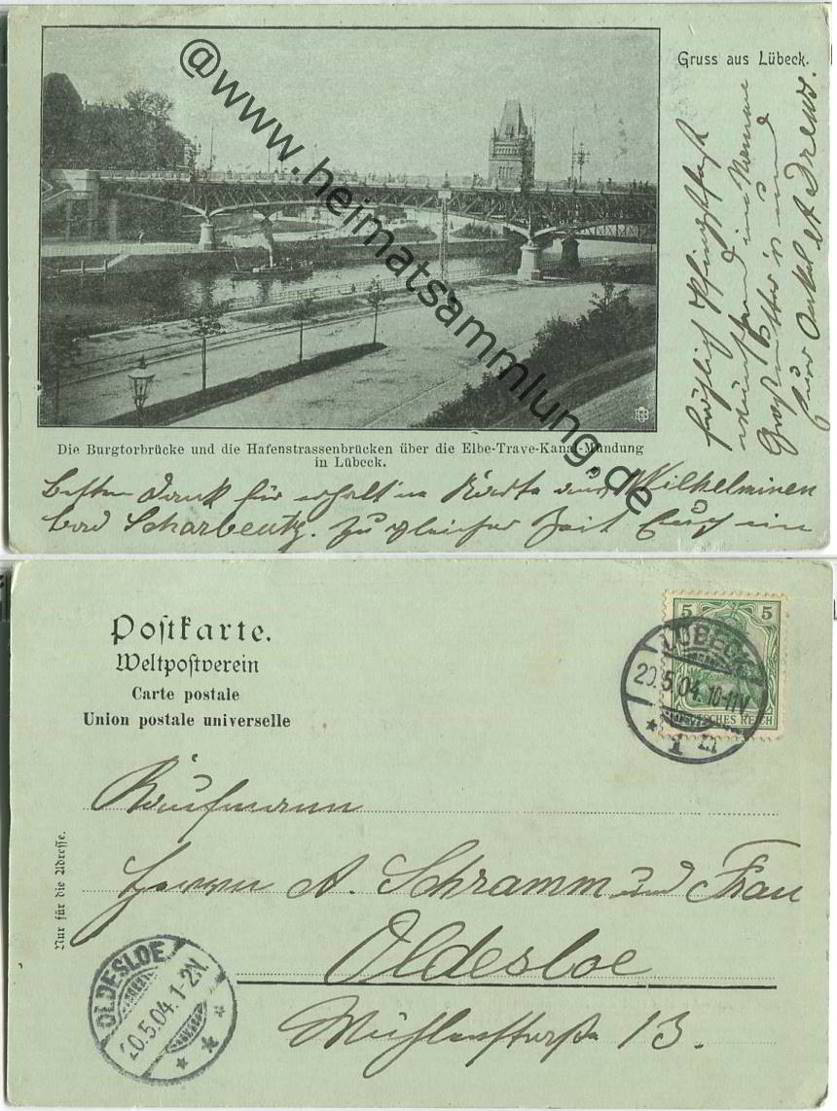 Gruss aus Lübeck.
@www.heimatsammlung.de
Die Burgtorbrücke und die Hafenstrassenbrücken über die Elbe-Trave-Kanal-Mündung
in Lübeck.
besten Dank für erhaltene Karte aus Wilhelminen
bad Scharbeutz. Zu gleicher Zeit Euch ein
fröhlich Pfingstfest
wünschend im Namen
Großmutter is und
Euer Onkel A Drews.
Postkarte.
Weltpostverein
Carte postale
Union postale universelle
5 5
DEUTSCHES REICH
LÜBECK
20.5.04. 10-11V
* 1
Kaufmann
Herrn A. Schramm und Frau
Oldesloe
Mühlenstraße 13.
Nur für die Adresse.
OLDESLOE
20.5.04. 1-2N
* * *